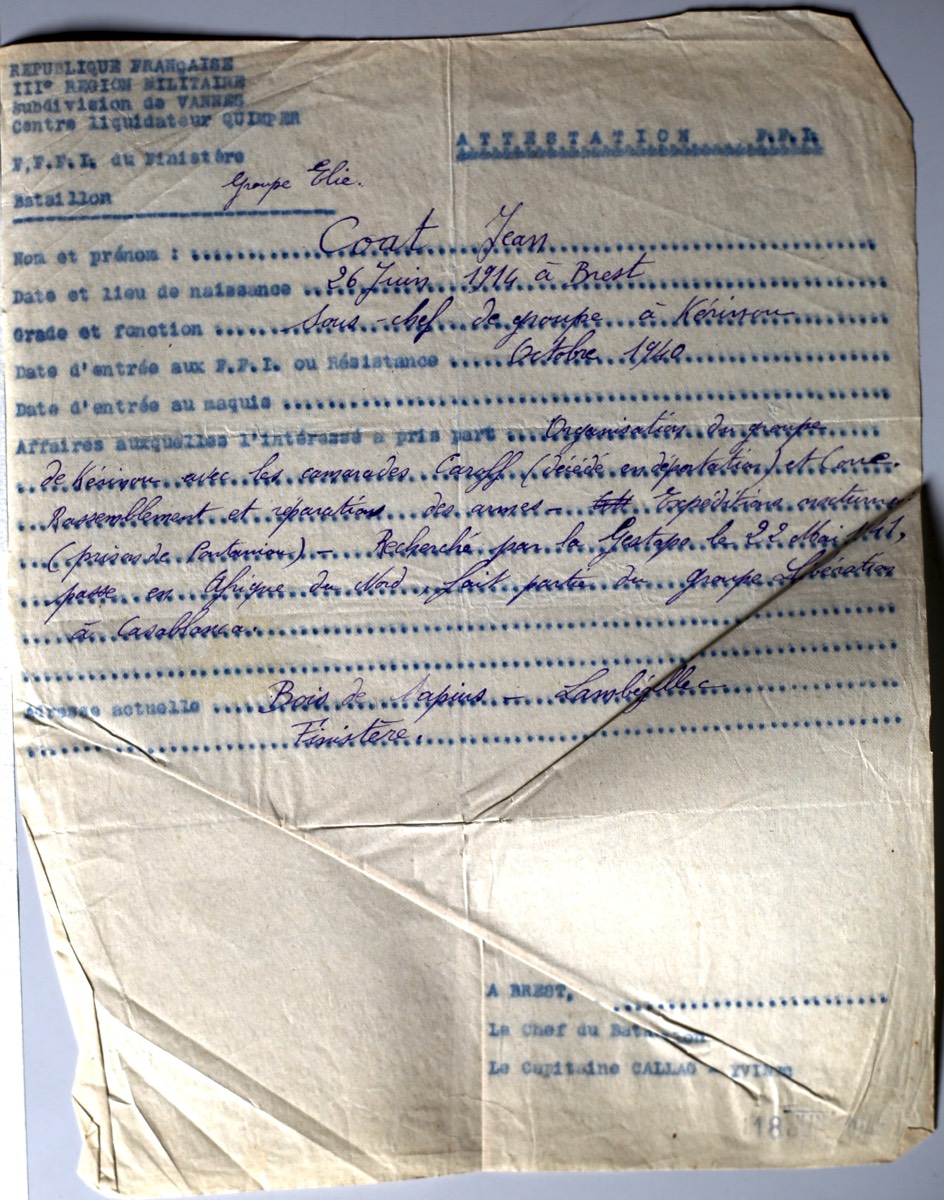 REPUBLIQUE FRANÇAISE
III° REGION MILITAIRE
Subdivision de VANNES
Centre liquidateur QUIMPER
F.F.F.I. du Finistère
ATTESTATION F.F.I.
Bataillon Groupe Elie.
Nom et prénom : Coat Jean
Date et lieu de naissance 26 Juin 1914 à Brest
Grade et fonction Sous-chef de groupe à Kérinou
Date d'entrée aux F.F.I. ou Résistance Octobre 1940
Date d'entrée au maquis
Affaires auxquelles l'intéressé a pris part Organisation du groupe
de Kérinou avec les camarades Caroff (décédé en déportation) et
Rassemblement et réparations des armes - Expéditions nocturnes
(prises de Pontaniou) - Recherché par la Gestapo le 22 Mai 1941,
passe en Afrique du Nord, fait partie du groupe Libération
à Casablanca.
Adresse actuelle Bois de Sapins - Lambézellec
Finistère.
A BREST,
Le Chef du Bataillon
Le Capitaine CALLAC - YVINEC
18